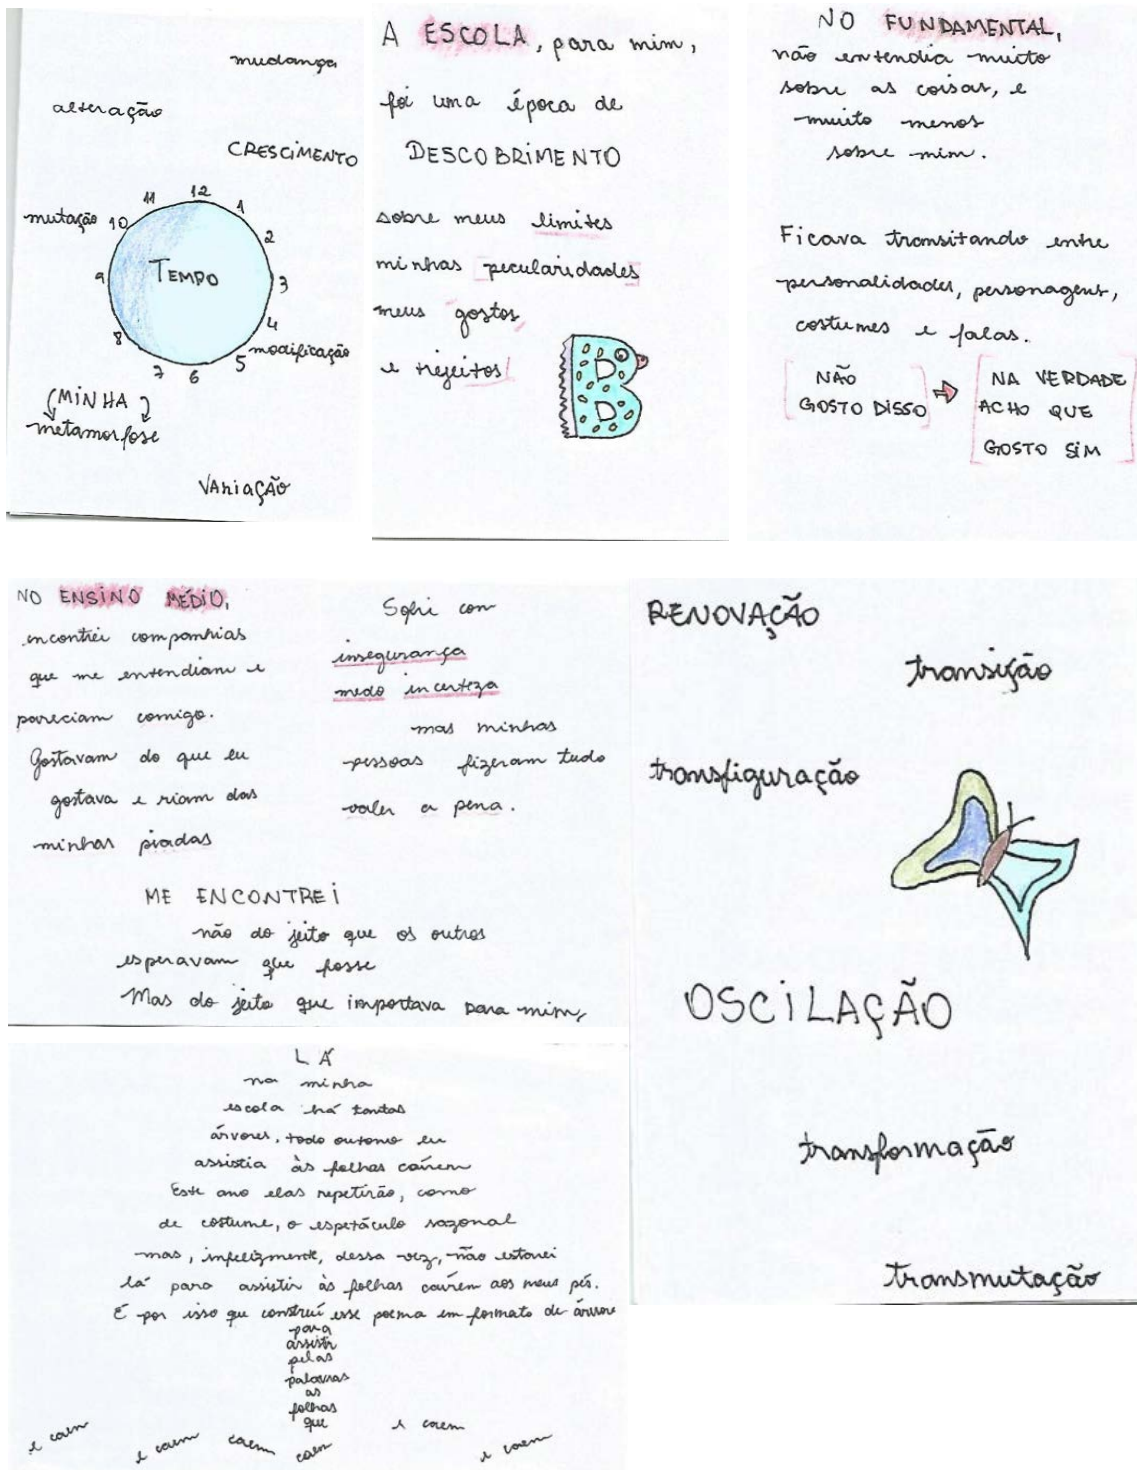 mudança
alteração
CRESCIMENTO
mutação
12
1
2
3
4
5
6
7
8
9
10
11
TEMPO
modificação
(MINHA
metamorfose
VARIAÇÃO
A ESCOLA, para mim,
foi uma época de
DESCOBRIMENTO
sobre meus limites
minhas pecularidades
meus gostos
e rejeitos!
B
NO FUNDAMENTAL,
não entendia muito
sobre as coisas, e
muito menos
sobre mim.
Ficava transitando entre
personalidades, personagens,
costumes e falas.
[NÃO
GOSTO DISSO]
[NA VERDADE
ACHO QUE
GOSTO SIM]
NO ENSINO MÉDIO,
encontrei companhias
que me entendiam e
pareciam comigo.
Gostavam do que eu
gostava e riam das
minhas piadas
Sofri com
insegurança
medo incerteza
mas minhas
pessoas fizeram tudo
valer a pena.
ME ENCONTREI
não do jeito que os outros
esperavam que fosse
Mas do jeito que importava para mim,
RENOVAÇÃO
transição
transfiguração
OSCILAÇÃO
transformação
transmutação
LÁ
na minha
escola há tantas
árvores, todo outono eu
assistia às folhas caírem
Este ano elas repetirão, como
de costume, o espetáculo sazonal
mas, infelizmente, dessa vez, não estarei
lá para assistir às folhas caírem aos meus pés.
É por isso que construí esse poema em formato de árvore
para
assistir
pelas
palavras
as
folhas
que
e caem
e caem
caem
caem
e caem
e caem